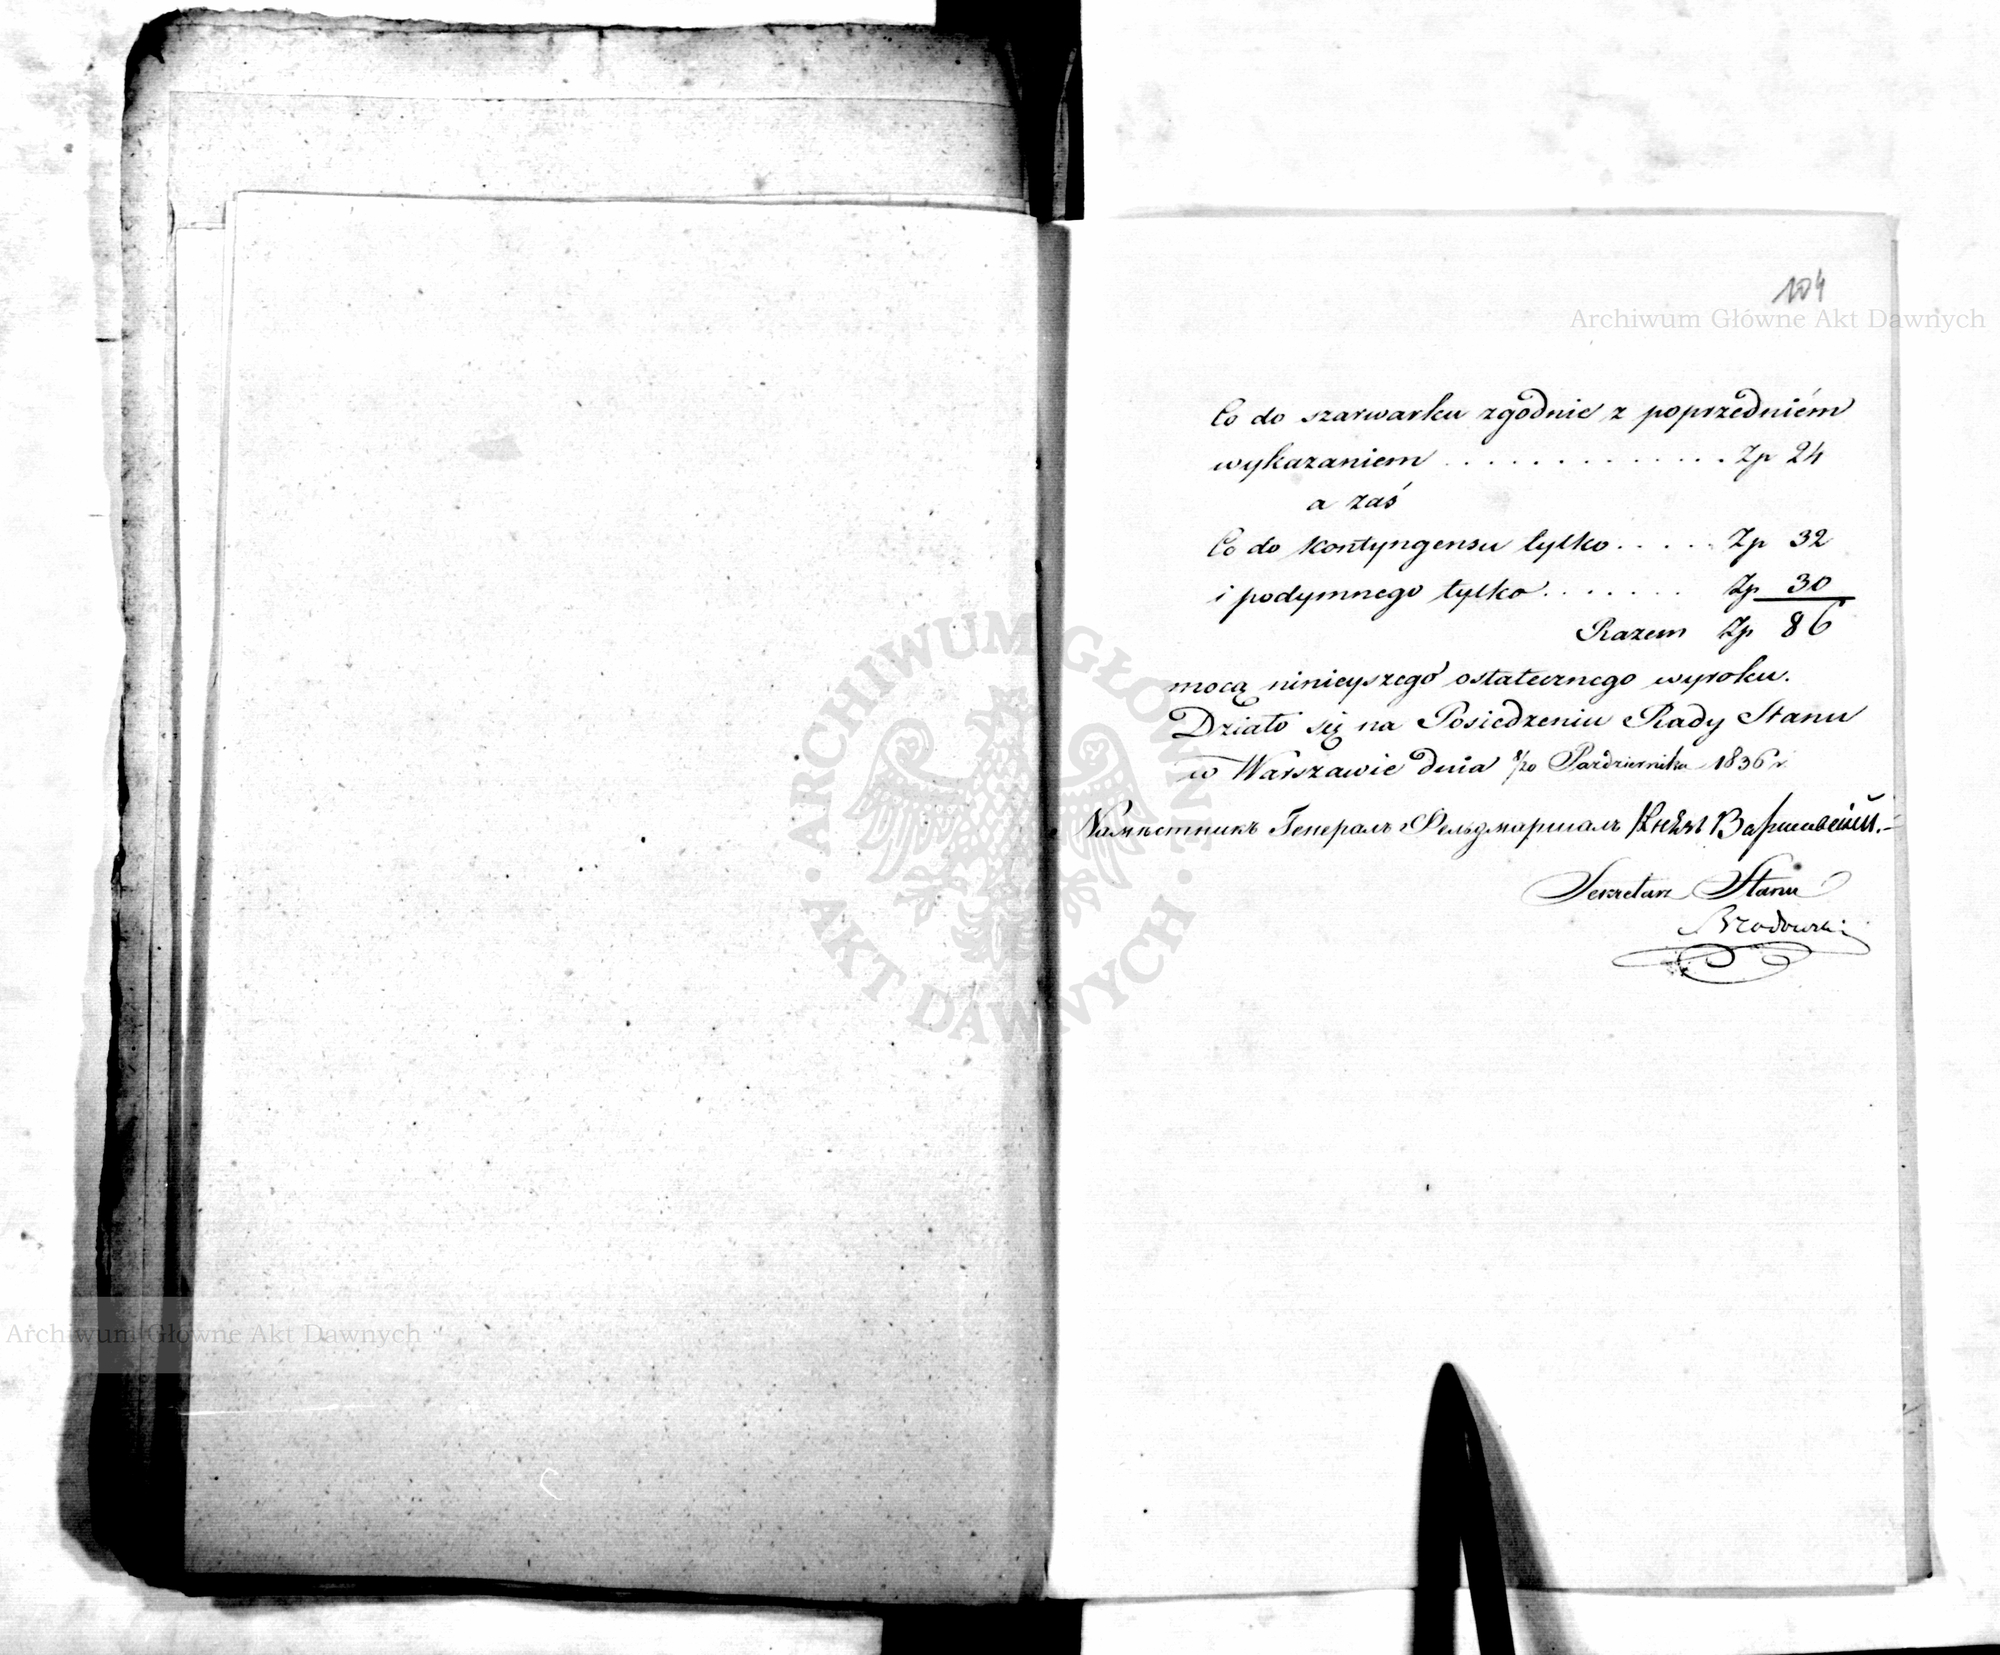 104
Archiwum Główne Akt Dawnych
Co do szarwarku zgodnie z poprzedniém
wykazaniem . . . . . . . . . . . . . Zp 24
a zaś
Co do kontyngensu tylko . . . . . Zp 32
i podymnego tylko . . . . . . . Zp 30
Razem Zp 86
mocą ninieyszego ostatecznego wyroku.
Działo się na Posiedzeniu Rady Stanu
w Warszawie dnia 8/20 Października 1836 r.
Намѣстникъ Генералъ Фельдмаршалъ Князь Варшавскій.
Sekretarz Stanu
Brzodowski
ARCHIWUM GŁÓWNE · AKT DAWNYCH ·
Archiwum Główne Akt Dawnych